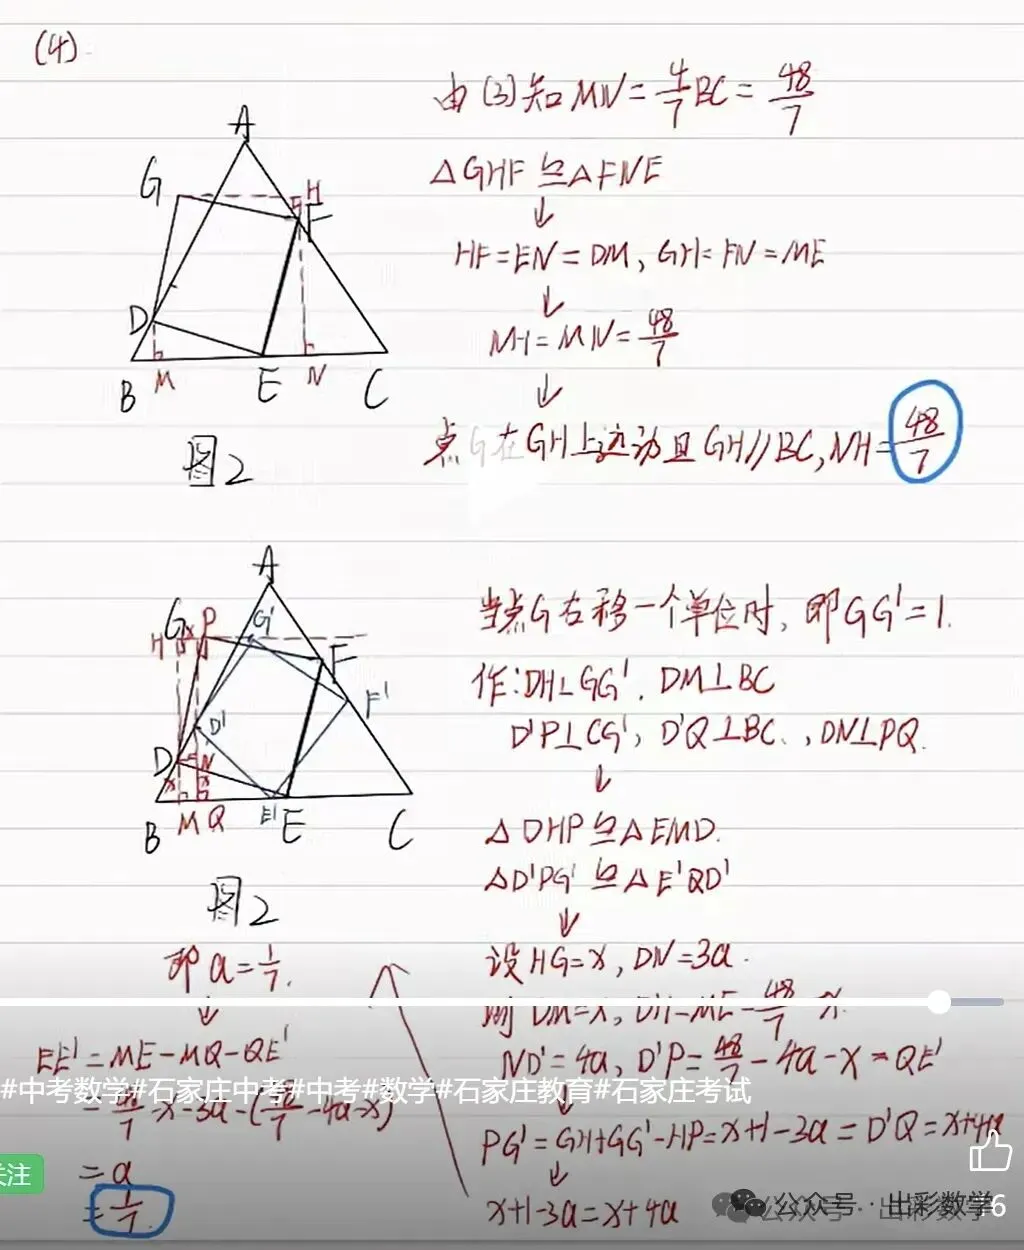 (4).
由(3)知MN=4/7BC=48/7
A
G
H
F
D
B
M
E
N
C
图2
△GHF≌△FNE
↓
HF=EN=DM, GH=FN=ME
↓
MH=MN=48/7
↓
点G在GH上运动且GH∥BC,NH=48/7
A
H
G
x
P
G'
F
F'
D'
D
N
x
x
B
M
Q
E'
E
C
图2
当点G右移一个单位时,即GG'=1.
作:DH⊥GG', DM⊥BC
D'P⊥CG', D'Q⊥BC., DN⊥PQ.
↓
△DHP≌△EMD.
△D'PG'≌△E'QD'
↓
设HG=x, DN=3a.
则DM=x, DH=ME=48/7-x.
ND'=4a, D'P=48/7-4a-x=QE'
↓
PG'=GH+GG'-HP=x+1-3a=D'Q=x+4a
↓
x+1-3a=x+4a
即a=1/7.
↓
EE'=ME-MQ-QE'
=48/7-x-3a-(48/7-4a-x)
=a
=1/7.
#中考数学#石家庄中考#中考#数学#石家庄教育#石家庄考试
关注
公众号·出彩数学
公众号·出彩数学
6